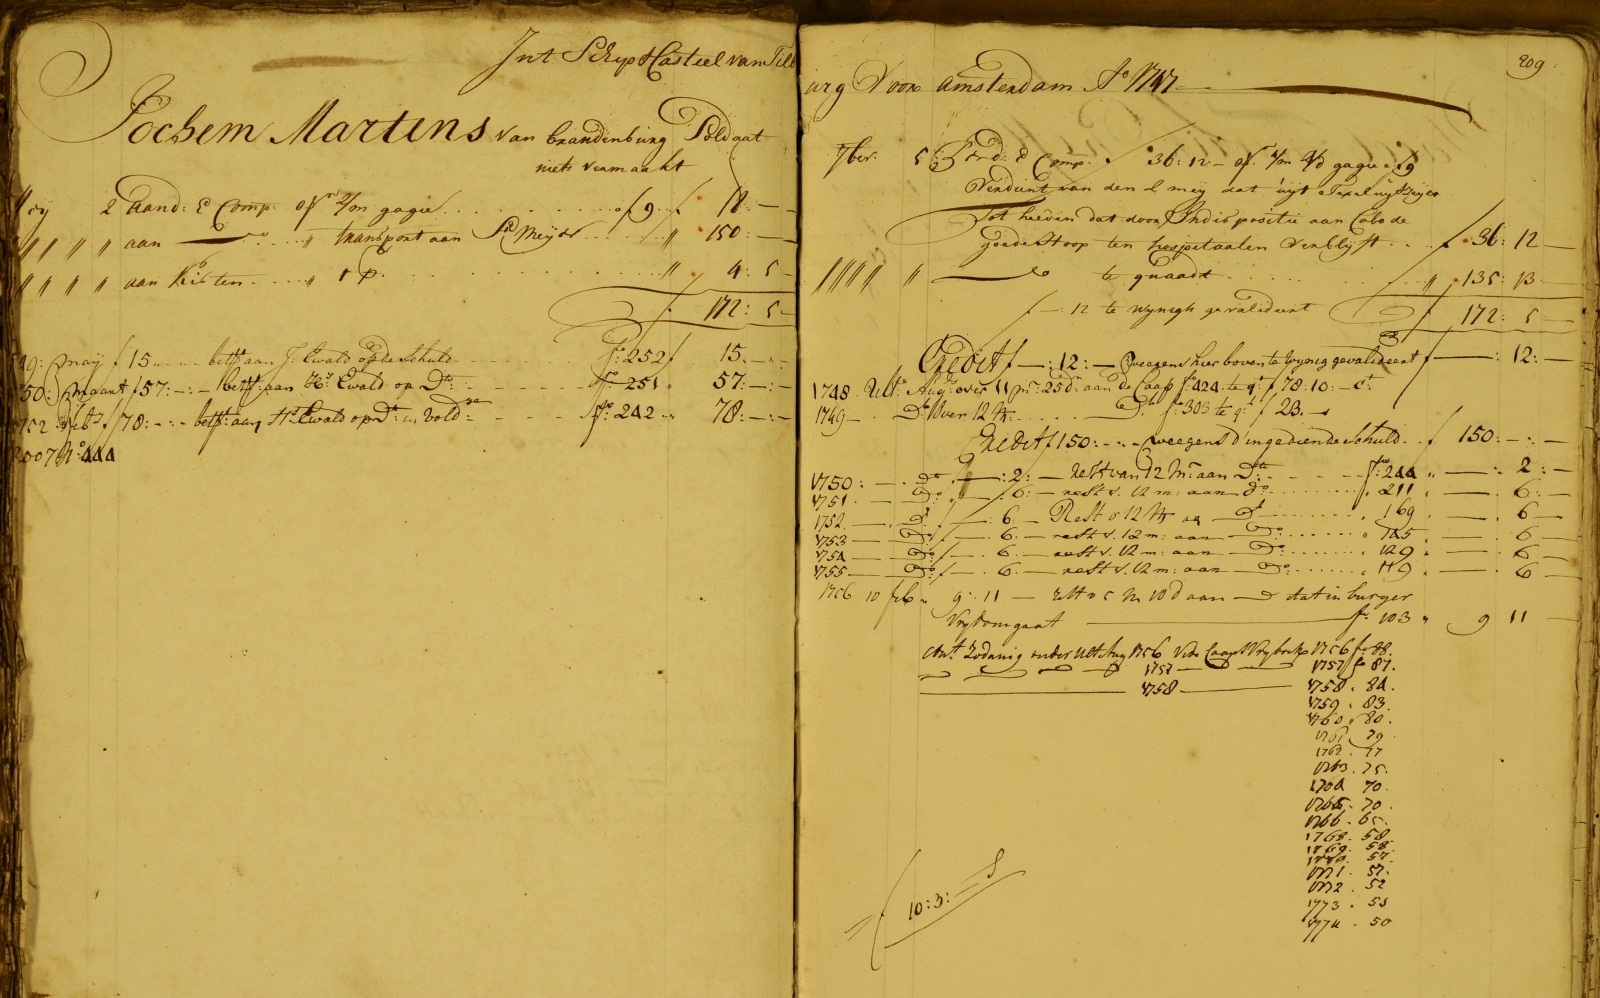 Int Schip t Casteel van Tilb
Jochem Martens van brandenburg Soldaat
niets vermaakt
Meij 2 aand: E Comp: off 2/m gagie . . . f 9 f 18:—
" " " " aan — do " transport aan Sr Meijer . . . " 150:—
" " " " aan Kisten " 1 p . . . " 4: 5
f 172: 5
49: maij f 15 bett aan J: Ewald op de Schuld fo: 252 f 15.—
50: maart f 57:—:— bett: aan Hr Ewald op Do:— fo: 251 " 57:—:—
1752 febr f 78:—:— bett: aan Hr Ewald op Do in vold: fo: 242 " 78:—:—
No: 444
209
urg Voor Amsterdam Ao 1747
7ber 5 E Comp: f 36: 12— off gagie f 9
Verdient van den 2 meij dat uijt Texel
Tot heeden dat door Indispositie aan Cabo de
goede Hoop ten hospitaalen verblijft f 36: 12
" " " " " — do te quaadt . . . " 135: 13
f —: 12 te wynigh gevalideert f 172: 5
Credit f —: 12:— weegens hier boven te wynig gevalideert f —: 12:—
1748 Ulto Augo over 11 m: 25 d: aan de Caap fo 424 te qt f 78:10—
1749 — Do over 12 m: — Do fo: 303 te qt f 23.—
Credit f 150:—:— weegens d'ingediende Schuld f 150:—:—
1750:— do f —: 2:— rest van 12 m: aan Do fo: 244 " —: 2:—
1751.— do " —: 6:— rest v. 12 m: aan do " 211 " —: 6:—
1752.— do f —: 6:— Rest v 12 m aan — do " 169 . —. 6—
1753 — do: f —. 6.— rest v. 12 m: aan — do: " 145 . —. 6—
1754 — do: f —. 6.— rest v. 12 m: aan — do: " 129 . —. 6
1755 — do: f —. 6:— rest v. 12 m: aan — do: " 119 . —. 6
1756 10 feb " 9: 11 — rest v 5 m 10 d aan — do dat in burger
vrijdom gaat fo 103 " 9 11 —
Cont Zodanig onder Ulto Aug 1756 Vide Caaps Vryboek 1756 fo 88.
1757 1757 fo 87.
1758 1758 . 84.
1759 . 83.
1760 . 80.
1761 79
1762 . 77
1763 . 75.
1764 70.
1765 . 70.
1766 . 65.
1768 . 58
1769 . 58.
1770 . 57.
1771 . 57.
1772 . 52
1773 . 53
1774 . 50
f 10:3:—